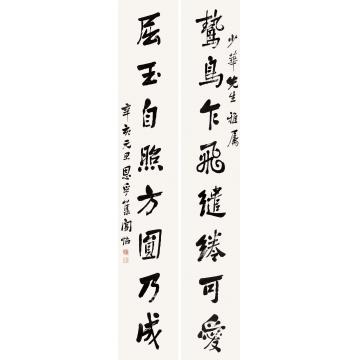 少華先生雅屬
鷙鳥乍飛繾綣可愛
屈玉自照方圓乃成
辛亥元旦恩寧